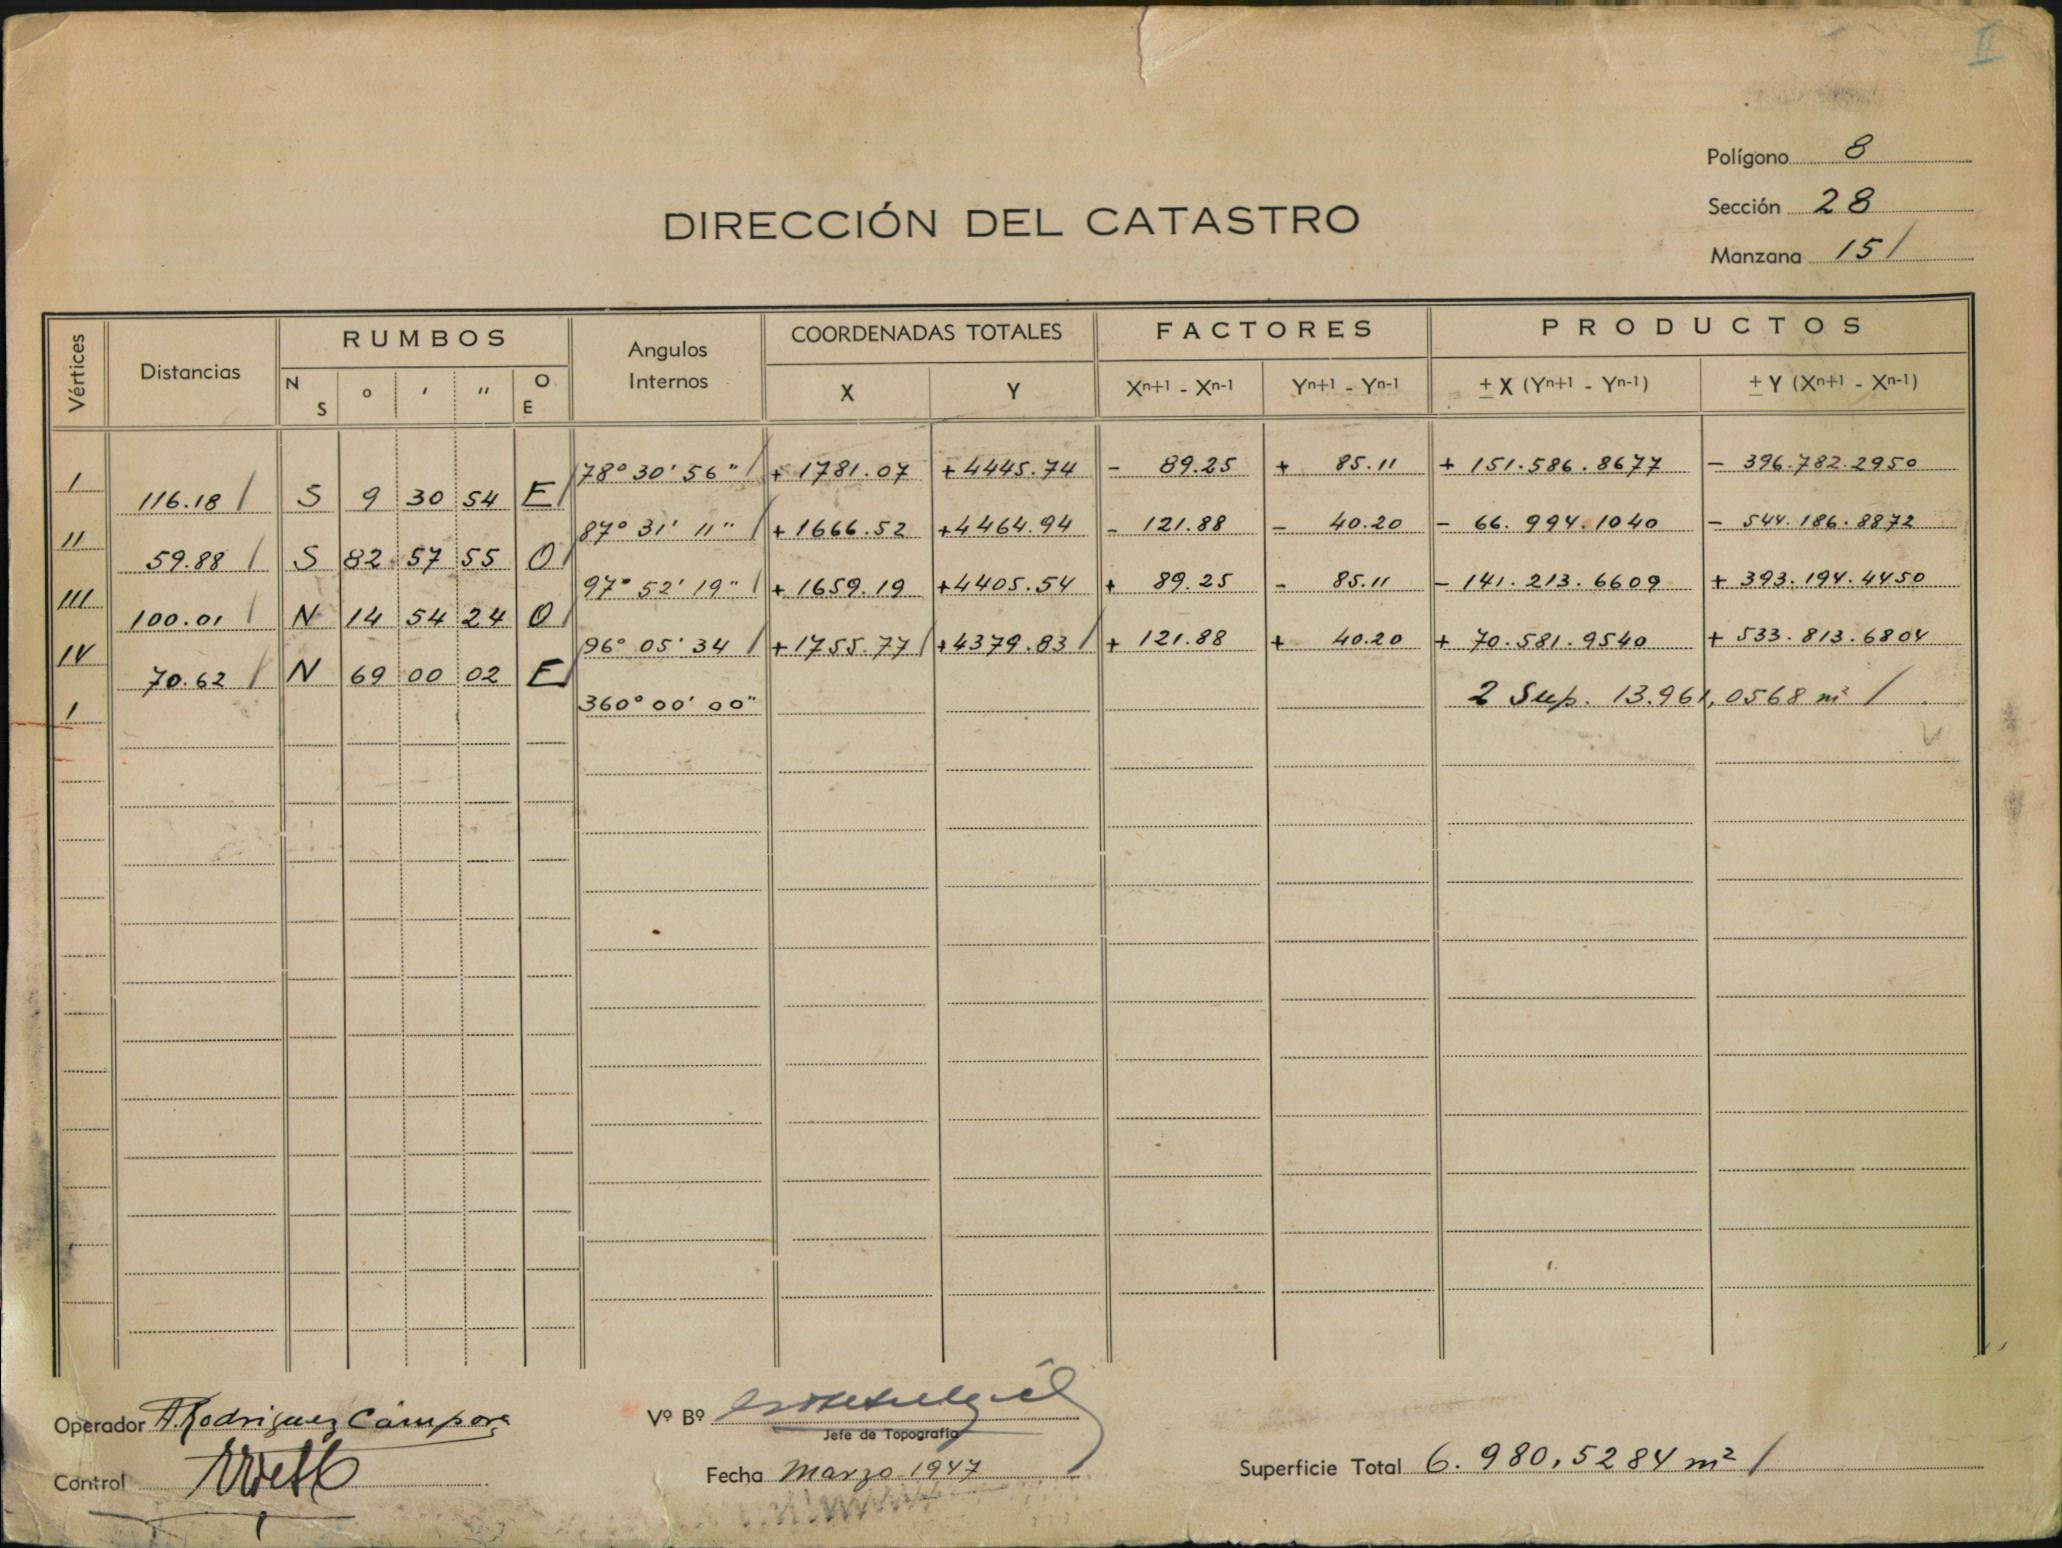 II
Polígono 8
Sección 28
Manzana 15 /
DIRECCIÓN DEL CATASTRO
Vértices Distancias RUMBOS Angulos Internos COORDENADAS TOTALES FACTORES PRODUCTOS
N S ° ' " O E X Y Xn+1 - Xn-1 Yn+1 - Yn-1 ± X (Yn+1 - Yn-1) ± Y (Xn+1 - Xn-1)
I 78° 30' 56" / + 1781.07 + 4445.74 - 89.25 + 85.11 + 151.586.8677 - 396.782.2950
116.18 / S 9 30 54 E /
II 87° 31' 11" / + 1666.52 + 4464.94 - 121.88 - 40.20 - 66.994.1040 - 544.186.8872
59.88 / S 82 57 55 O /
III 97° 52' 19" / + 1659.19 + 4405.54 + 89.25 - 85.11 - 141.213.6609 + 393.194.4450
100.01 / N 14 54 24 O /
IV 96° 05' 34 / + 1755.77 / + 4379.83 / + 121.88 + 40.20 + 70.581.9540 + 533.813.6804
70.62 / N 69 00 02 E /
I 360° 00' 00" 2 Sup. 13.961,0568 m² /
Operador A. Rodriguez Cámpora
Vº Bº
Jefe de Topografía
Control
Fecha Marzo 1947
Superficie Total 6.980,5284 m² /